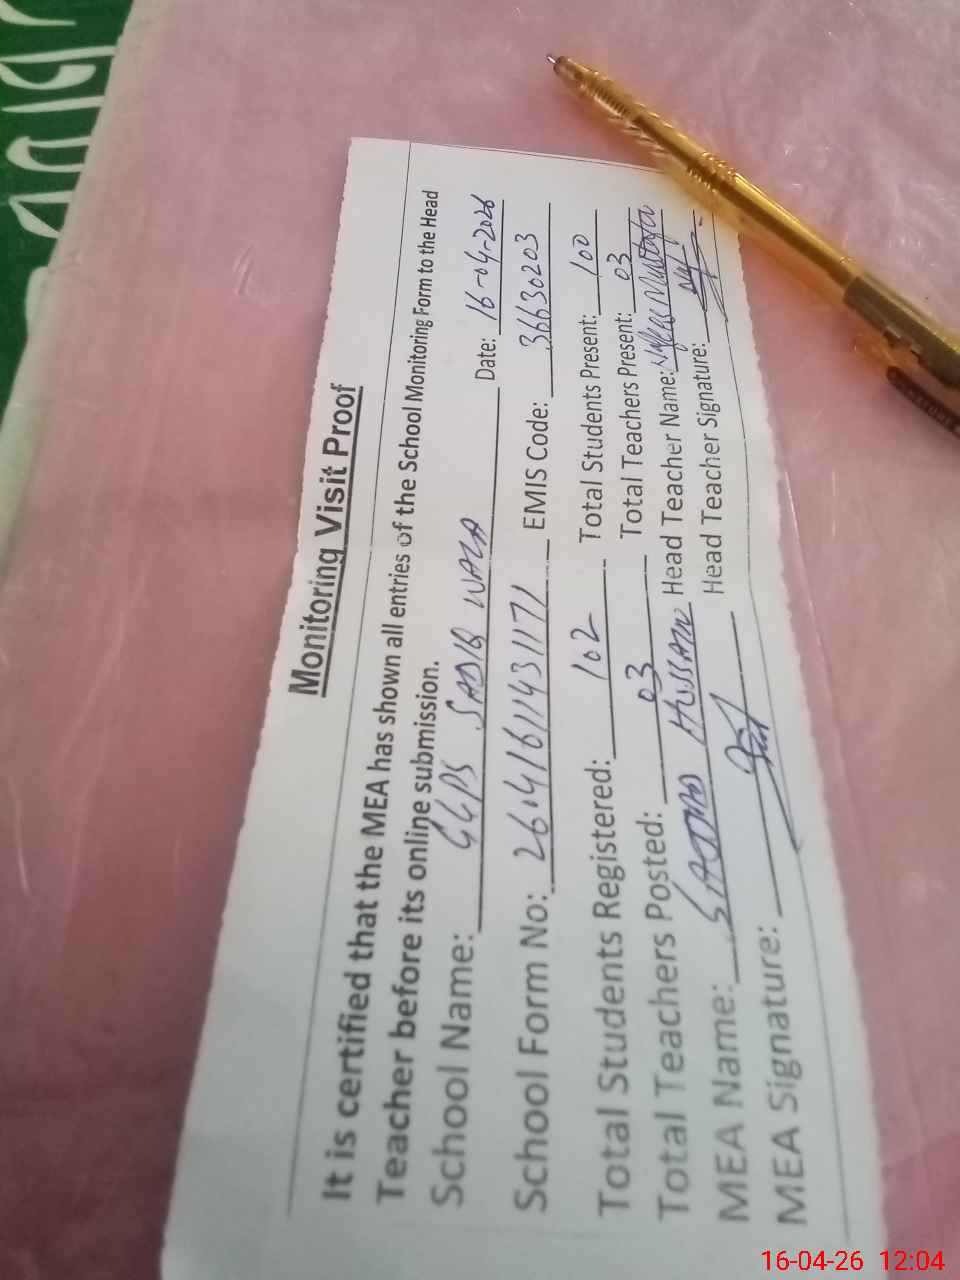 Monitoring Visit Proof
It is certified that the MEA has shown all entries of the School Monitoring Form to the Head
Teacher before its online submission.
School Name: GGPS SADIQ WALA Date: 16-04-2026
School Form No: 26041611431171 EMIS Code: 36630203
Total Students Registered: 102 Total Students Present: 100
Total Teachers Posted: 03 Total Teachers Present: 03
MEA Name: SAJJAD HUSSAIN Head Teacher Name: Mustafa
MEA Signature: Head Teacher Signature:
16-04-26 12:04